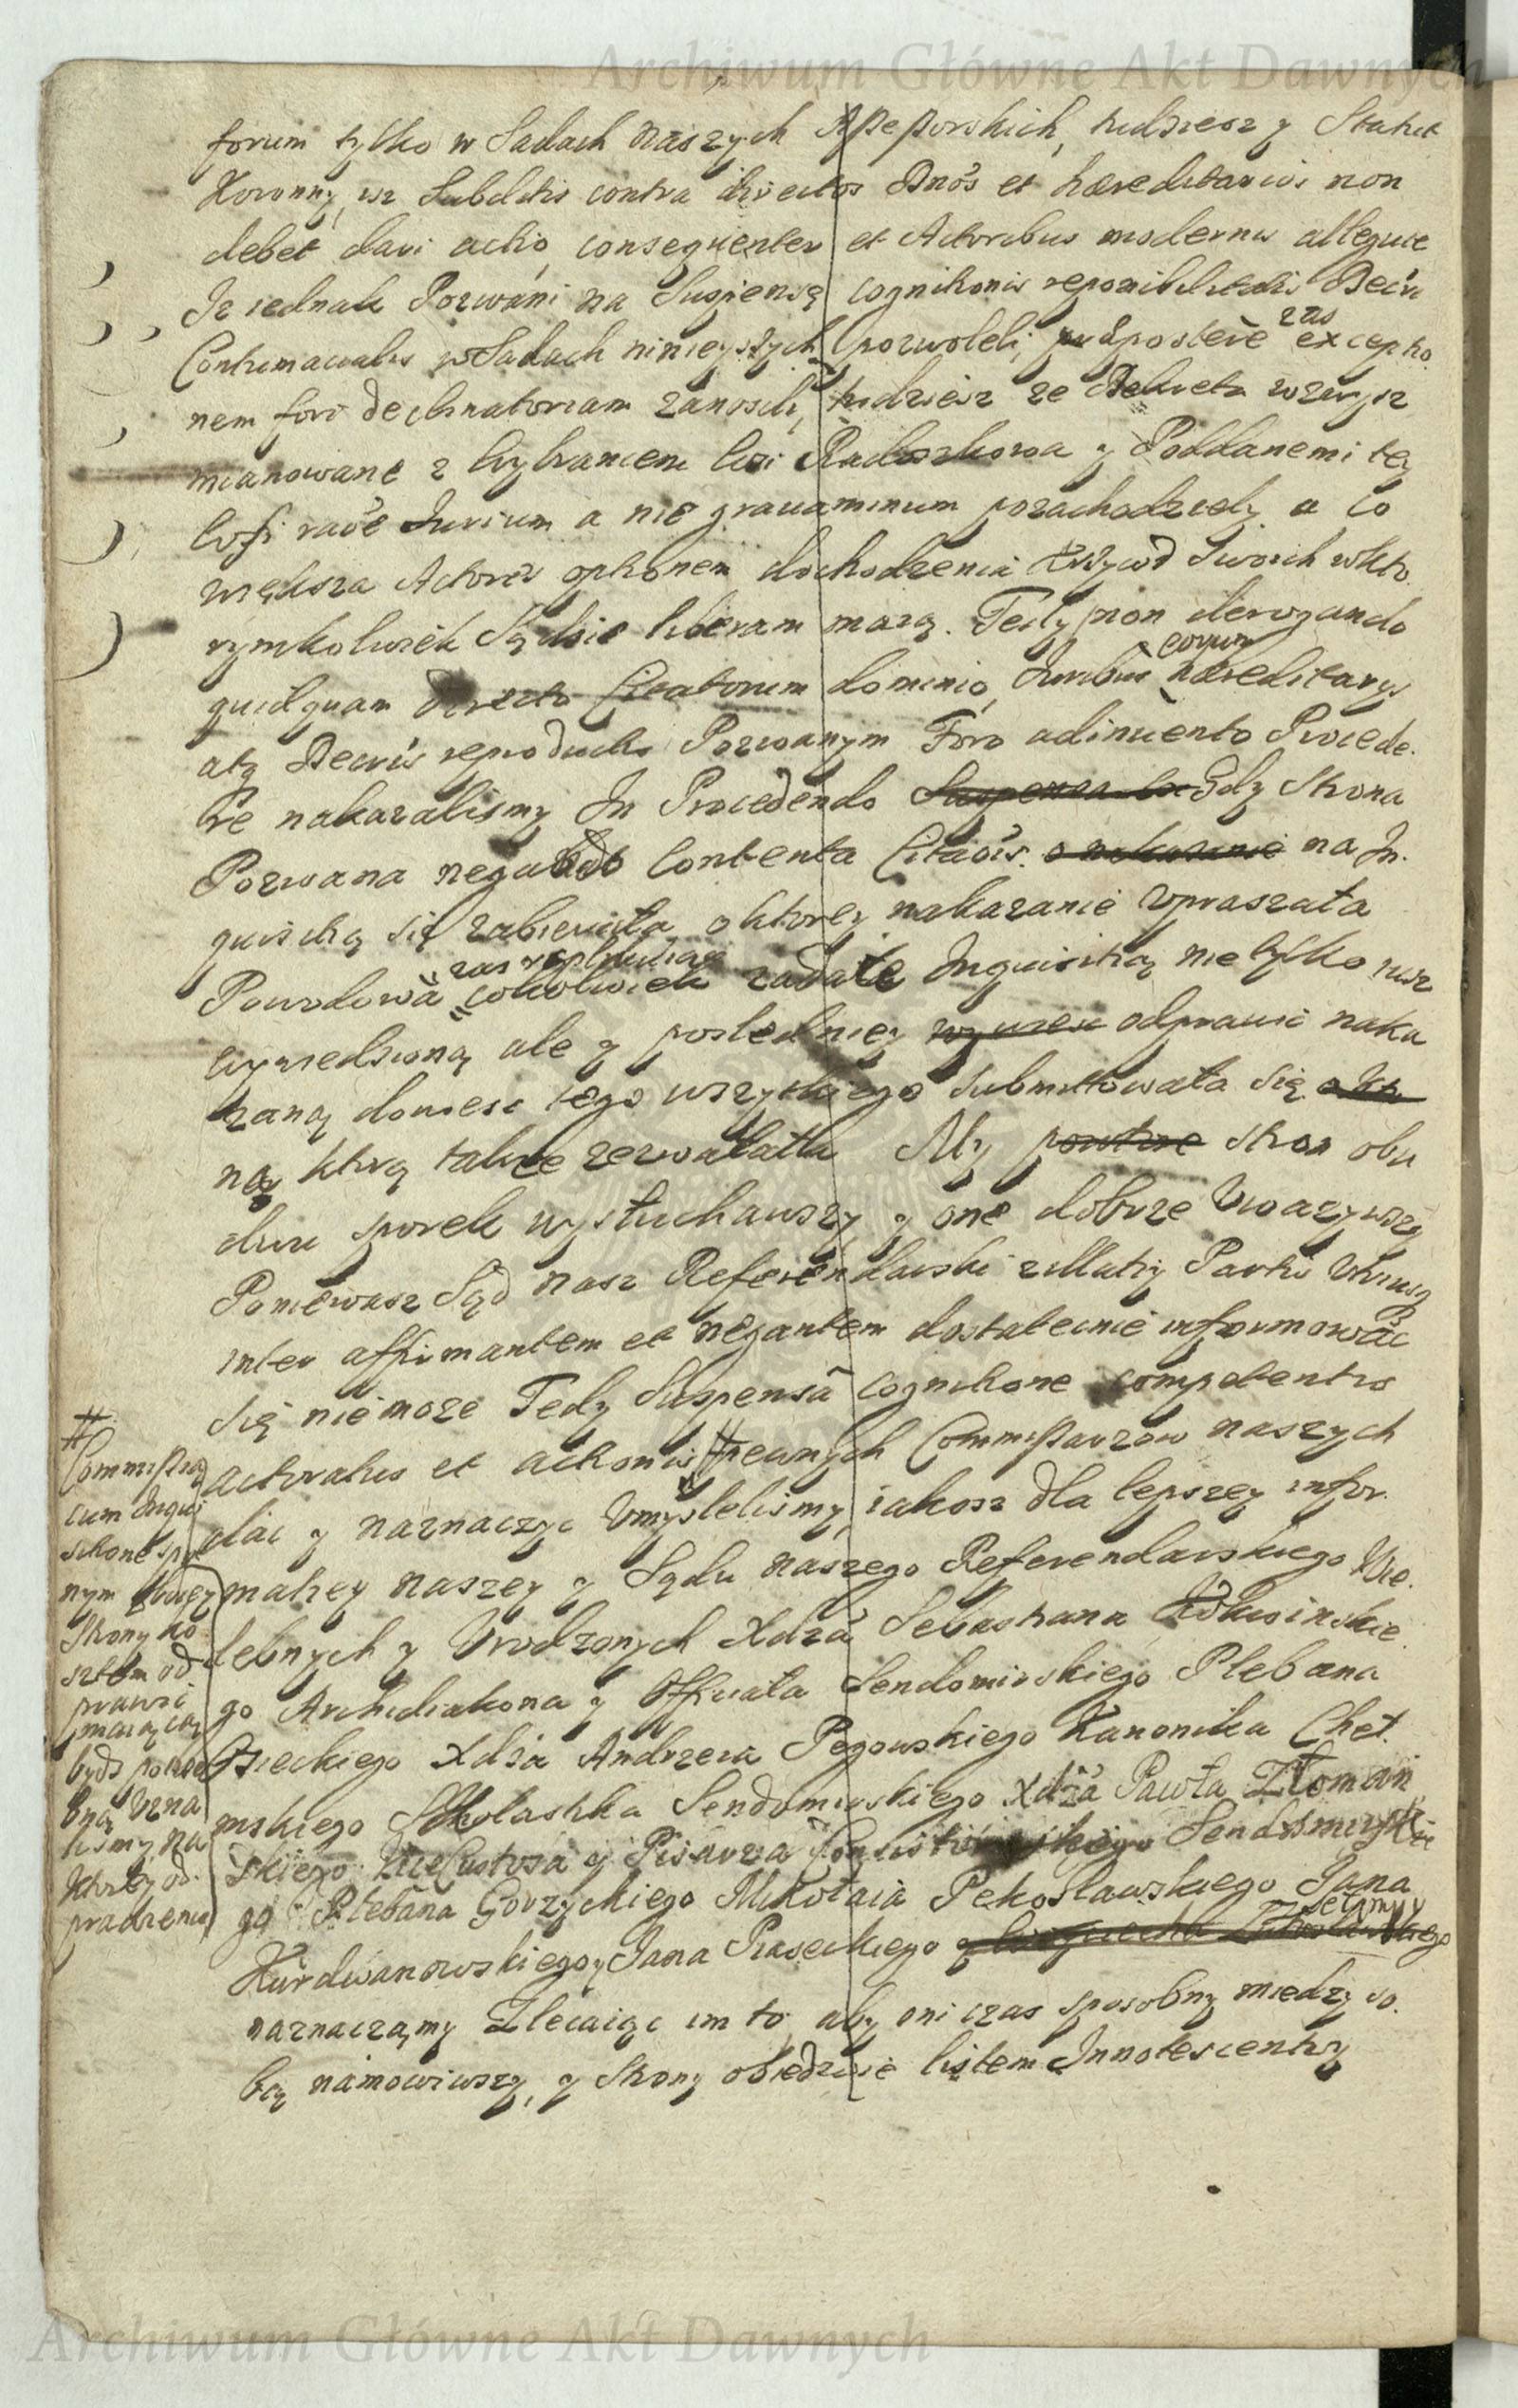 Archiwum Główne Akt Dawnych
forum tylko w Sadach naszych Assessorskich, tudziesz y Statut
Koronny, isz Subditis contra directos Dnos et hæreditarios non
debet dari actio, consequenter et Actoribus modernis alleguie
Iz iednak Pozwani na Suspensę cognitionis reponibilitatis Decr
Contumacialis w Sadach ninieyszych pozwoleli, præpostere zas excepti
nem fori declinatoriam zanosili, tudziesz ze Dekreta wzwysz
mianowane z Wybrancem Wsi Radoszkowa y Poddanemi tey
Wsi raõe Iurium a nie grauaminum pozachodzieły a co
większa Actores optionem dochodzenia krzywd swoich w któ
rymkolwiek Sądzie liberam maią. Tedy non derogando
quidquam directo Citatorum dominio, Iuribus eorum hæreditarys
atq Decris reproductis Pozwanym Foro adinuento Procede
re nakazalismy In Procedendo Gdy Strona
Pozwana negatõo Contenta Citaõis o nakazanie na In
quisitią się zabierała o ktorey nakazanie Vpraszała
Powodowa zas replikuiąc cokolwiek zadałe Inquisitią nie tylko iusz
wywiedzioną ale y posledniey odprawić naka
zaną dowiesc tego wszystkiego submittowała się
na ktorą takze zezwalała My stron obu
dwu sporek wysłuchawszy y one dobrze Vwazywszy
Poniewasz Sąd nasz Referendarski z Illatiy Partis Vtriusq
inter affirmantem et negantem dostatecznie informować
się nie moze Tedy Suspensa cognitione competentis
actoratus et actionis # pewnych Commissarzow naszych
dac y naznaczyc Vmyslelismy, iakosz dla lepszey infor
matiey naszey y Sądu naszego Referendarskiego Wie
lebnych y Vrodzonych Xdza Sebastiana
go Archidiakona y Officiała Sendomirskiego Plebana
Osieckiego Xdza Andrzeia Pęgowskiego Kanonika Cheł
mskiego Skolastyka Sendomirskiego Xdza Pawła Złoman
skiego ViceCustosa y Pisarza Sendomirskie
go Plebana Gorzyckiego Mikołaia Pekosławskiego Jana
Kurdwanowskiego y Jana Piaseckiego
naznaczamy Zlecaiąc im to, aby oni czas sposobny miedzy so
bą namowiwszy, y Strony obiedwie listem Innotescentiy
#
Commissią
cum Inqui
sitione spo
nym obuey
Strony ko
sztem od
prawic
maiącą
bydz potrze
bną Vzna
lismy na
ktorey od
prawienie
Archiwum Główne Akt Dawnych